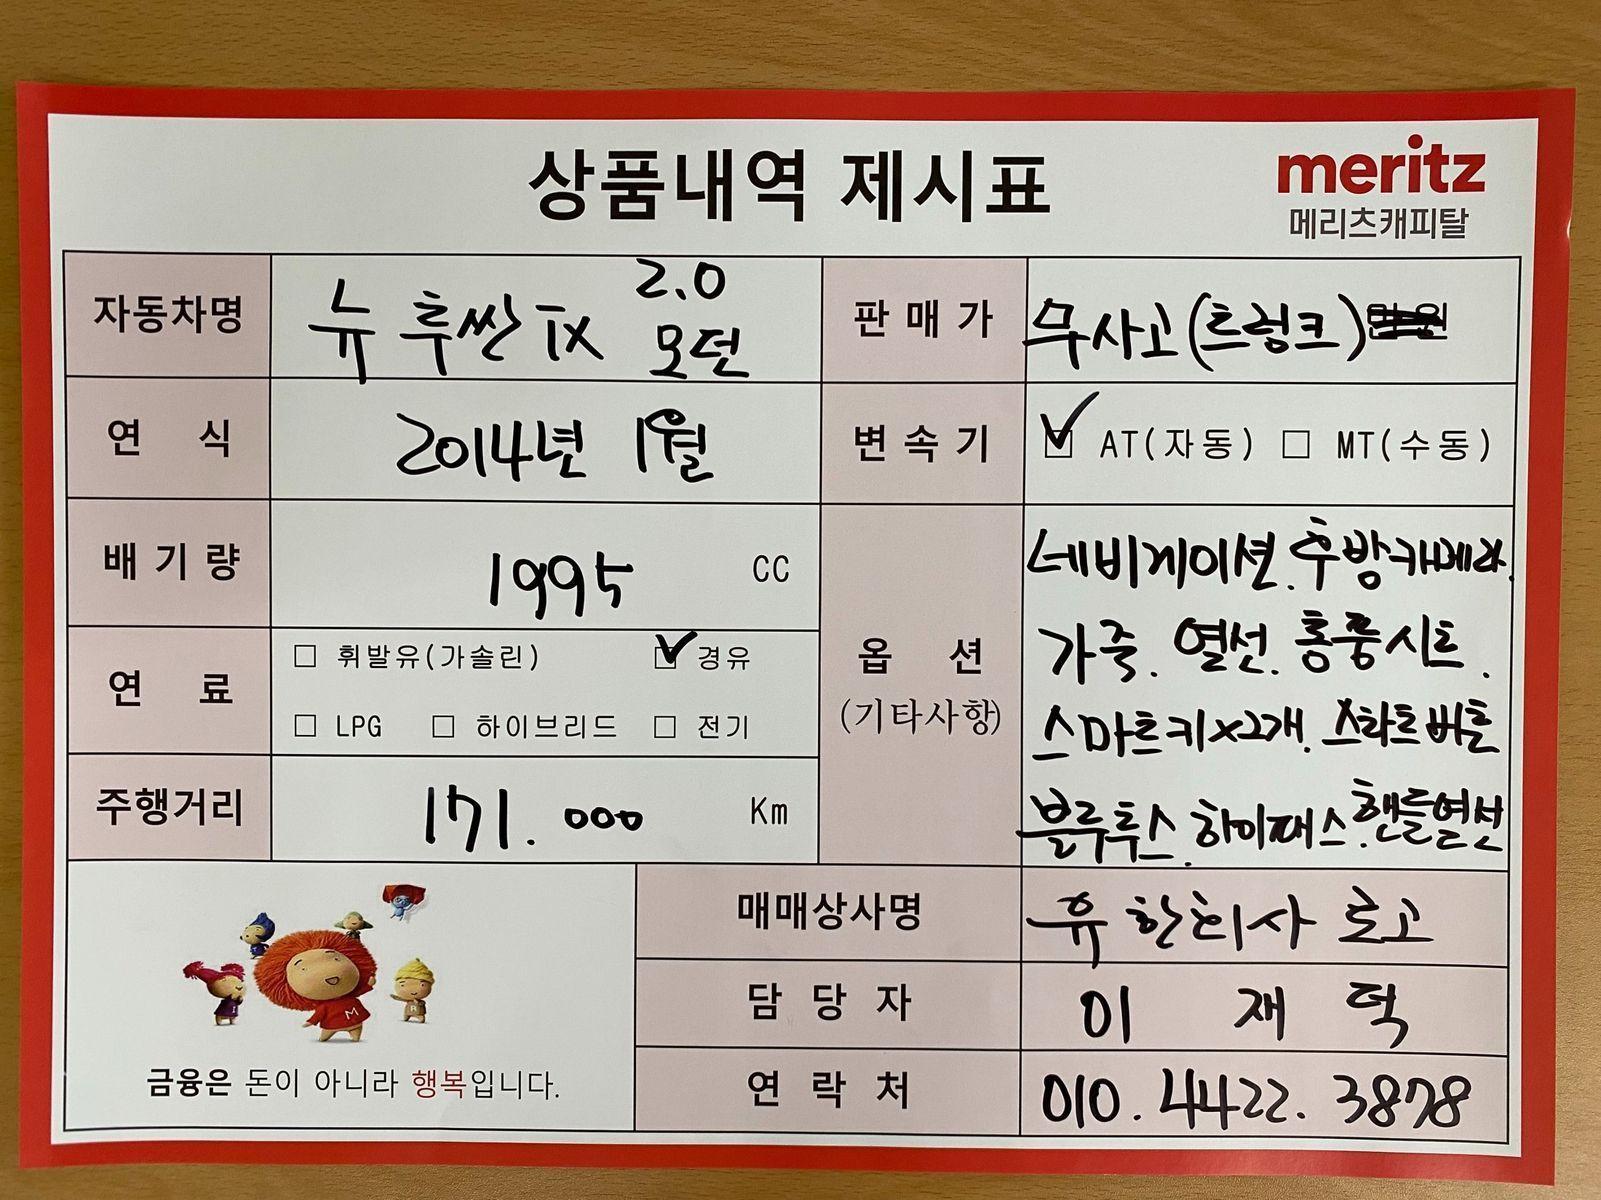 상품내역 제시표
meritz
메리츠캐피탈
자동차명 뉴 투싼 ix 2.0 모던
판매가 무사고(트렁크)
연식 2014년 1월
변속기 ☑ AT(자동) ☐ MT(수동)
배기량 1995 CC
연료 ☐ 휘발유(가솔린) ☑ 경유
☐ LPG ☐ 하이브리드 ☐ 전기
주행거리 171.000 Km
옵션
(기타사항)
네비게이션. 후방카메라.
가죽. 열선. 통풍시트.
스마트키x2개. 스타트버튼
블루투스. 하이패스. 핸들열선
매매상사명 유한회사 로고
담당자 이재덕
연락처 010.4422.3878
금융은 돈이 아니라 행복입니다.
M